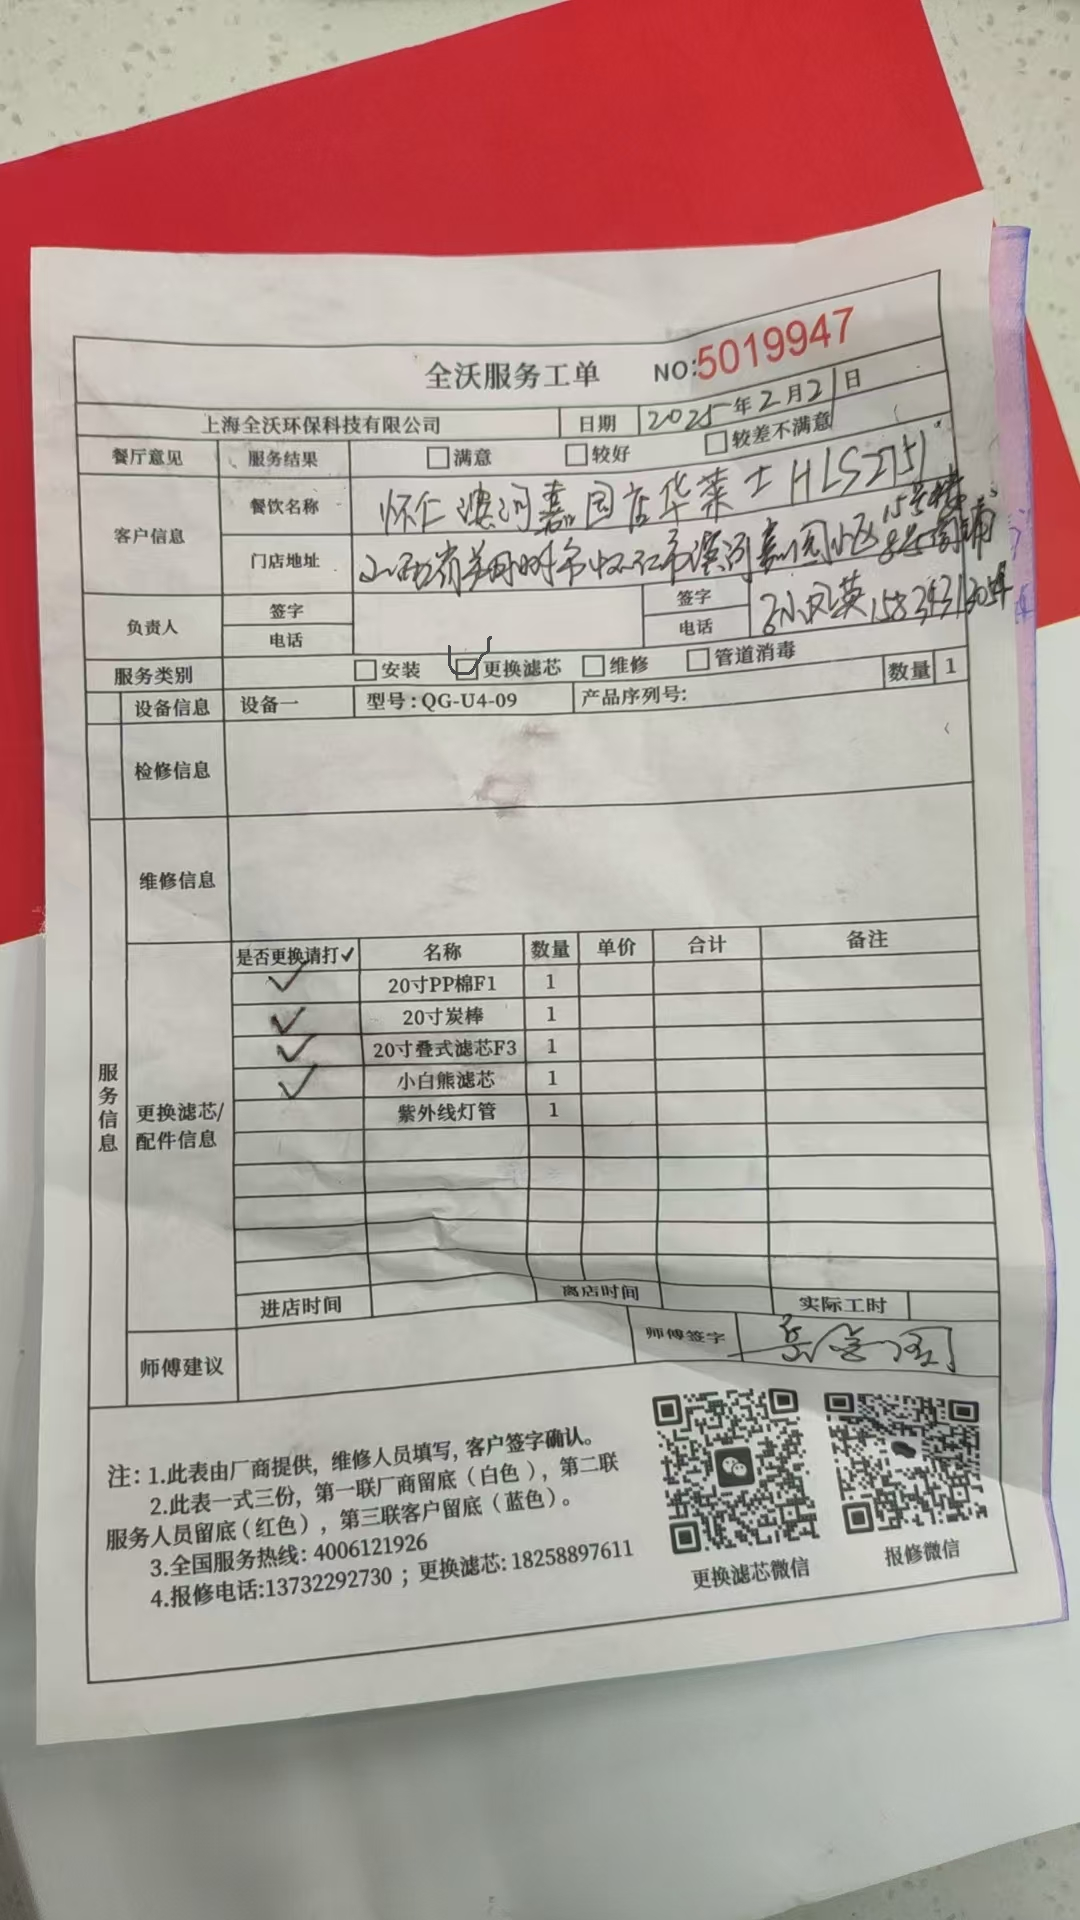 全沃服务工单 NO:5019947
上海全沃环保科技有限公司 日期 2025年2月21日
餐厅意见 服务结果 满意 较好 较差不满意
客户信息 餐饮名称 怀仁 河嘉园店华莱士HLS2751
门店地址 山西省 市怀仁市 河嘉园小区15号楼
8号商铺
负责人 签字 签字 凤英15834313054
电话 电话
服务类别 安装 更换滤芯 维修 管道消毒
设备信息 设备一 型号:QG-U4-09 产品序列号: 数量 1
检修信息
维修信息
服务信息
更换滤芯/配件信息
是否更换请打✓ 名称 数量 单价 合计 备注
✓ 20寸PP棉F1 1
✓ 20寸炭棒 1
✓ 20寸叠式滤芯F3 1
✓ 小白熊滤芯 1
紫外线灯管 1
进店时间 离店时间 实际工时
师傅建议 师傅签字
注:1.此表由厂商提供,维修人员填写,客户签字确认。
2.此表一式三份,第一联厂商留底(白色),第二联
服务人员留底(红色),第三联客户留底(蓝色)。
3.全国服务热线:4006121926
4.报修电话:13732292730;更换滤芯:18258897611
更换滤芯微信 报修微信